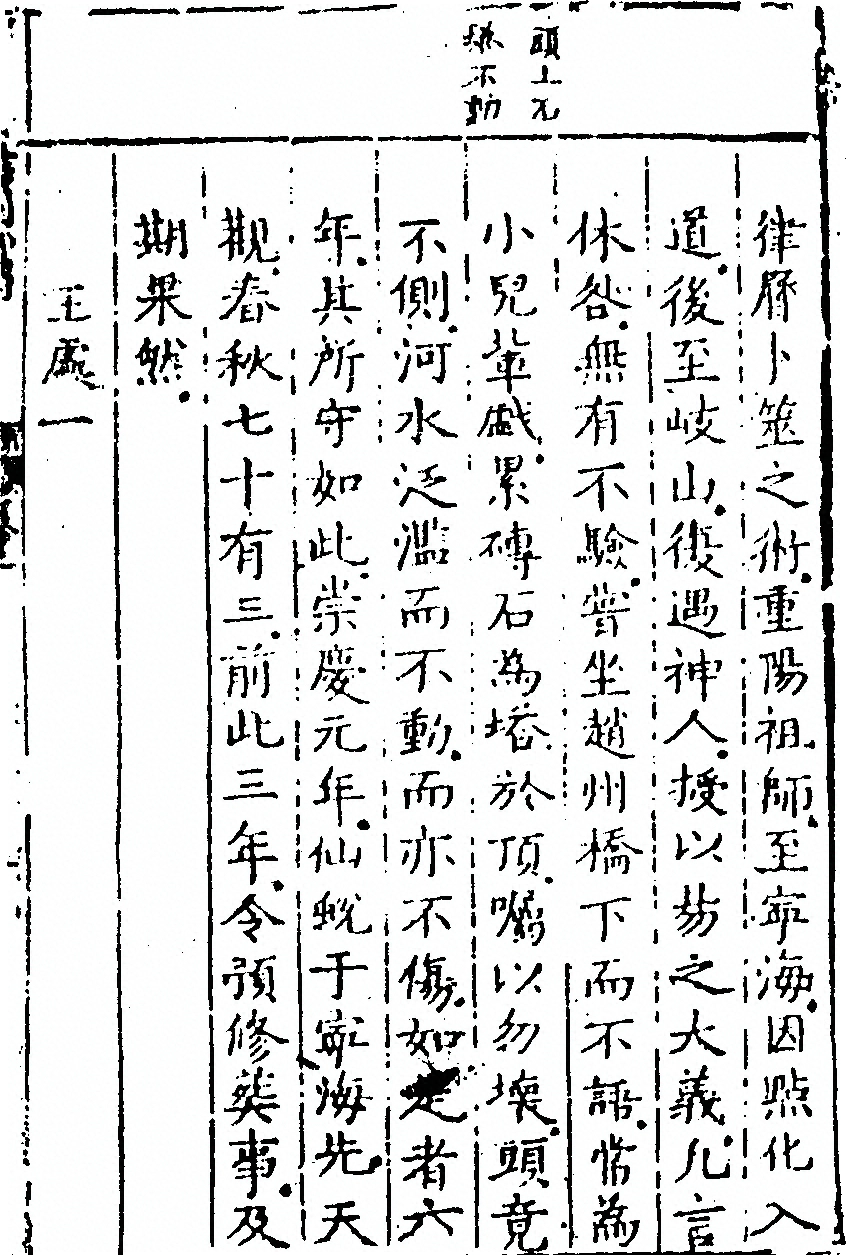 頭上尤
燕不動
律曆卜筮之術重陽祖師至寕海因㸃化入
道後至岐山復遇神人授以易之大義凡言
休咎無有不驗嘗坐趙州橋下而不語常為
小兒軰戱累磚石為塔於頂囑以勿壊頭竟
不側河水泛濫而不動而亦不傷如是者六
年其所守如此崇慶元年仙蛻于寕海先天
觀春秋七十有三前此三年令預修葬事及
期果然
王處一